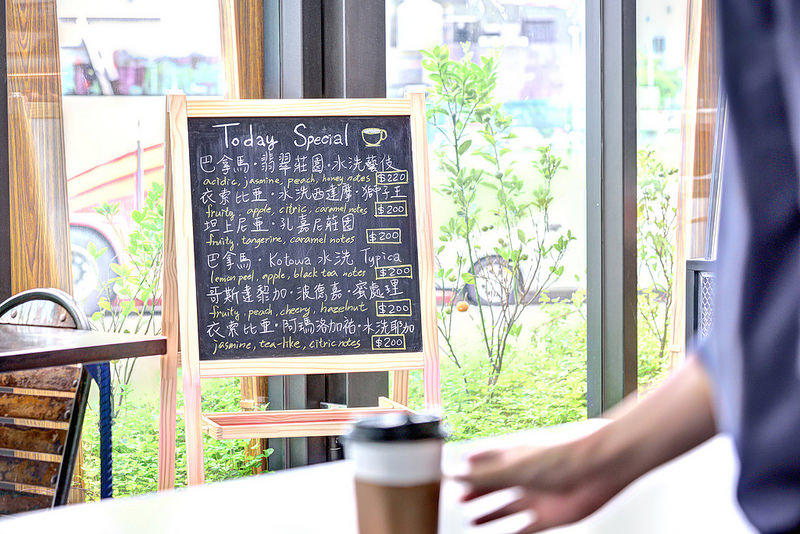 Today Special
巴拿馬·翡翠莊園·水洗藝伎
acidic, jasmine, peach, honey notes $220
衣索比亞·水洗西達摩·獅子王
fruity, apple, citric, caramel notes $200
坦上尼亞·孔嘉尼莊園
fruity, tangerine, caramel notes $200
巴拿馬·Kotowa 水洗 Typica
lemon peel, apple, black tea notes $200
哥斯達黎加·波德嘉·蜜處理
fruity, peach, cherry, hazelnut $200
衣索比亞·阿瑪洛加祐·水洗耶加
jasmine, tea-like, citric notes $200